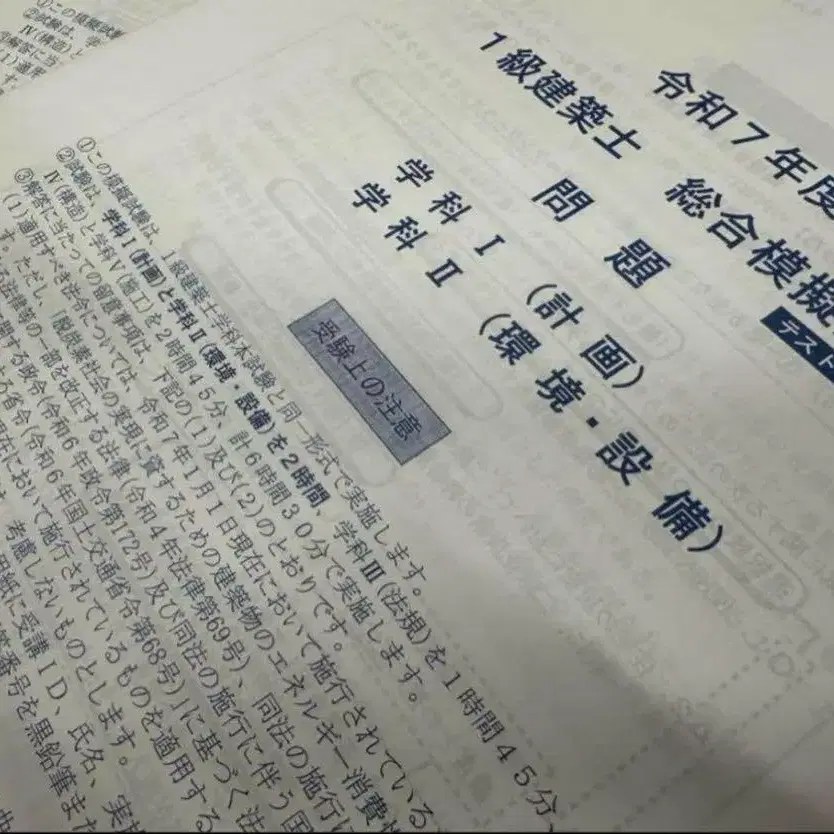 令和7年度
1級建築士 総合模擬
テスト
問題
学科Ⅰ（計画）
学科Ⅱ（環境・設備）
受験上の注意
①この模擬試験は、1級建築士学科本試験と同一形式で実施します。
②試験は、学科Ⅰ(計画)と学科Ⅱ(環境・設備)を2時間、学科Ⅲ(法規)を1時間45分、
Ⅳ(構造)と学科Ⅴ(施工)を2時間45分、計6時間30分で実施します。
③解答に当たっての留意事項は、下記の(1)及び(2)のとおりです。
(1)適用すべき法令については、令和7年1月1日現在において施行されている
す。ただし、「脱炭素社会の実現に資するための建築物のエネルギー消費性
る法律等の一部を改正する法律(令和4年法律第69号)、同法の施行に伴う国
関する政令(令和6年政令第172号)及び同法の施行に
る省令(令和6年国土交通省令第68号)」に基づく法
在において施行されているものを適用する
考慮しないものとします。
用紙に受講ID、氏名、
番号を黒鉛筆また
①この模擬試験
②試験は、学
Ⅳ(構造)と
解答に当
(1)適用